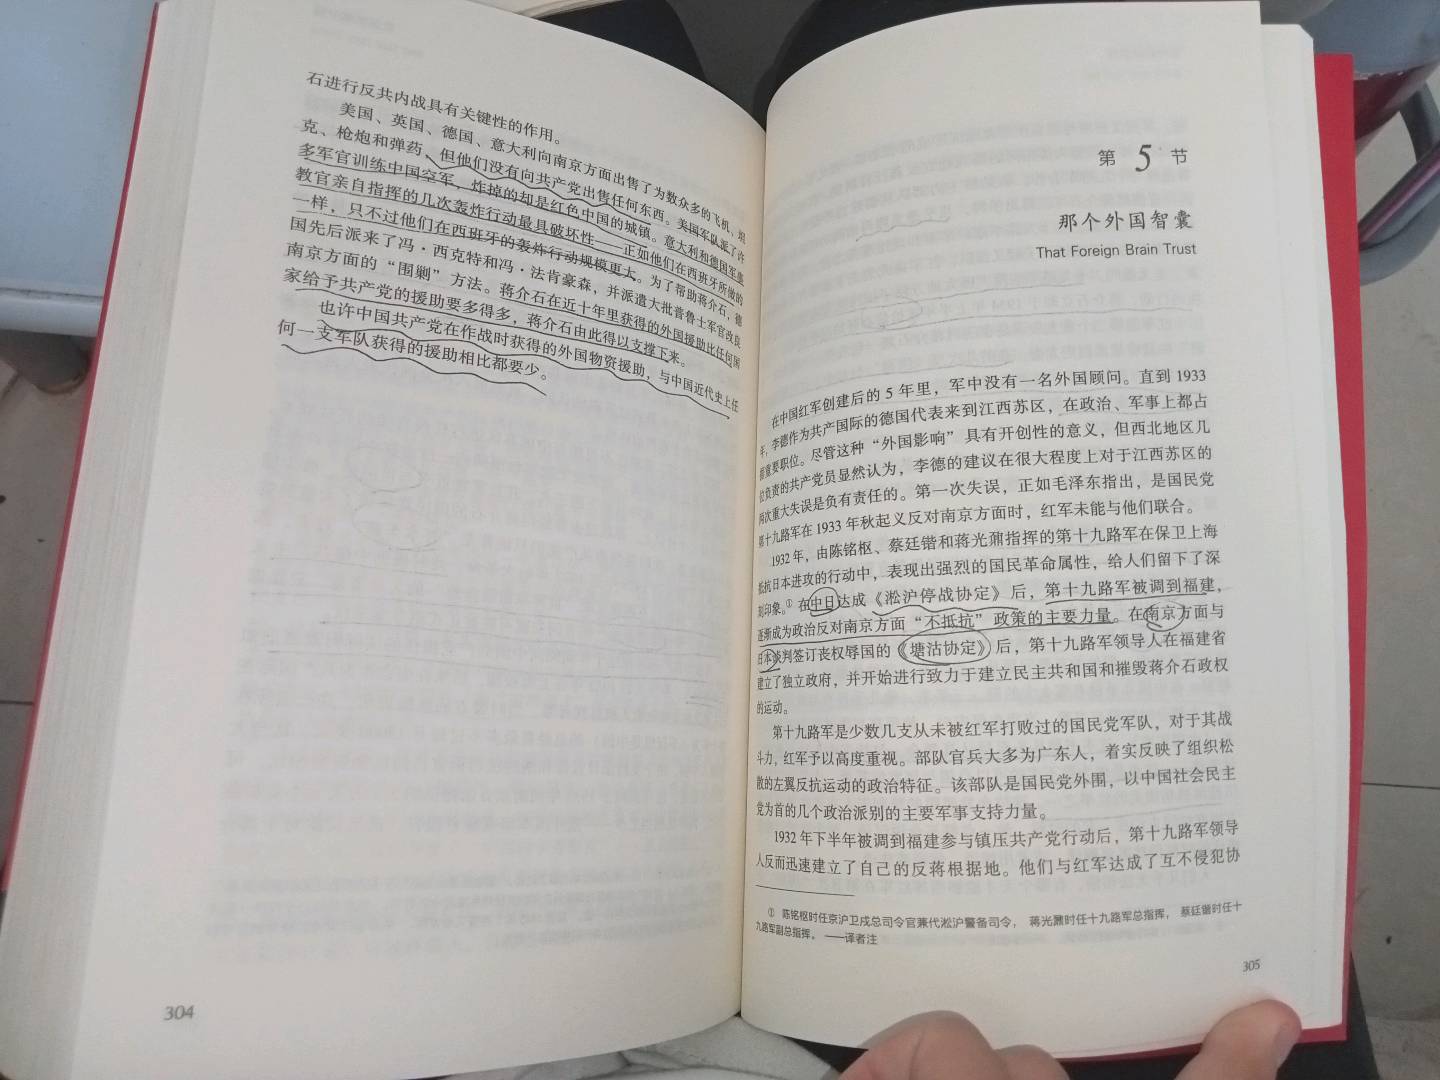 石进行反共内战具有关键性的作用。
美国、英国、德国、意大利向南京方面出售了为数众多的飞机、坦
克、枪炮和弹药，但他们没有向共产党出售任何东西。美国军队派了许
多军官训练中国空军，炸掉的却是红色中国的城镇。意大利和德国军事
教官亲自指挥的几次轰炸行动最具破坏性——正如他们在西班牙所做的
一样，只不过他们在西班牙的轰炸行动规模更大。为了帮助蒋介石，德
国先后派来了冯·西克特和冯·法肯豪森，并派遣大批普鲁士军官改良
南京方面的“围剿”方法。蒋介石在近十年里获得的外国援助比任何国
家给予共产党的援助要多得多，蒋介石由此得以支撑下来。
也许中国共产党在作战时获得的外国物资援助，与中国近代史上任
何一支军队获得的援助相比都要少。
304
第 5 节
那个外国智囊
That Foreign Brain Trust
在中国红军创建后的 5 年里，军中没有一名外国顾问。直到 1933
年，李德作为共产国际的德国代表来到江西苏区，在政治、军事上都占
据重要职位。尽管这种“外国影响”具有开创性的意义，但西北地区几
位负责的共产党员显然认为，李德的建议在很大程度上对于江西苏区的
两次重大失误是负有责任的。第一次失误，正如毛泽东指出，是国民党
第十九路军在 1933 年秋起义反对南京方面时，红军未能与他们联合。
1932 年，由陈铭枢、蔡廷锴和蒋光鼐指挥的第十九路军在保卫上海
抵抗日本进攻的行动中，表现出强烈的国民革命属性，给人们留下了深
刻印象。① 在中日达成《淞沪停战协定》后，第十九路军被调到福建，
逐渐成为政治反对南京方面“不抵抗”政策的主要力量。在南京方面与
日本谈判签订丧权辱国的《塘沽协定》后，第十九路军领导人在福建省
建立了独立政府，并开始进行致力于建立民主共和国和摧毁蒋介石政权
的运动。
第十九路军是少数几支从未被红军打败过的国民党军队，对于其战
斗力，红军予以高度重视。部队官兵大多为广东人，着实反映了组织松
散的左翼反抗运动的政治特征。该部队是国民党外围，以中国社会民主
党为首的几个政治派别的主要军事支持力量。
1932 年下半年被调到福建参与镇压共产党行动后，第十九路军领导
人反而迅速建立了自己的反蒋根据地。他们与红军达成了互不侵犯协
① 陈铭枢时任京沪卫戍总司令官兼代淞沪警备司令，蒋光鼐时任十九路军总指挥，蔡廷锴时任十
九路军副总指挥。——译者注
305